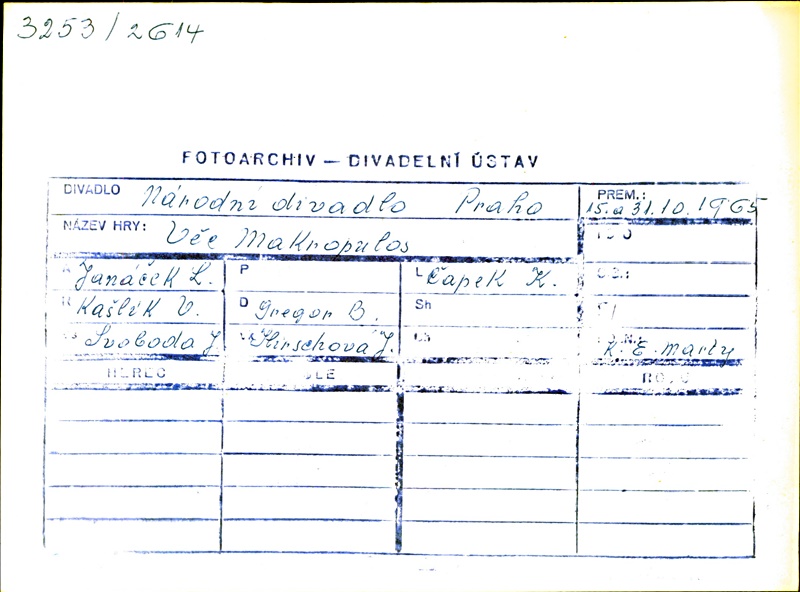 3253/2614
FOTOARCHIV — DIVADELNÍ ÚSTAV
DIVADLO Národní divadlo Praha PREM.: 15. a 31.10.1965
NÁZEV HRY: Věc Makropulos
Janáček L. P L Čapek K.
Kašlík V. D Gregor B. Sh
Svoboda J. Hirschová J. K. E. Marty
HEREC